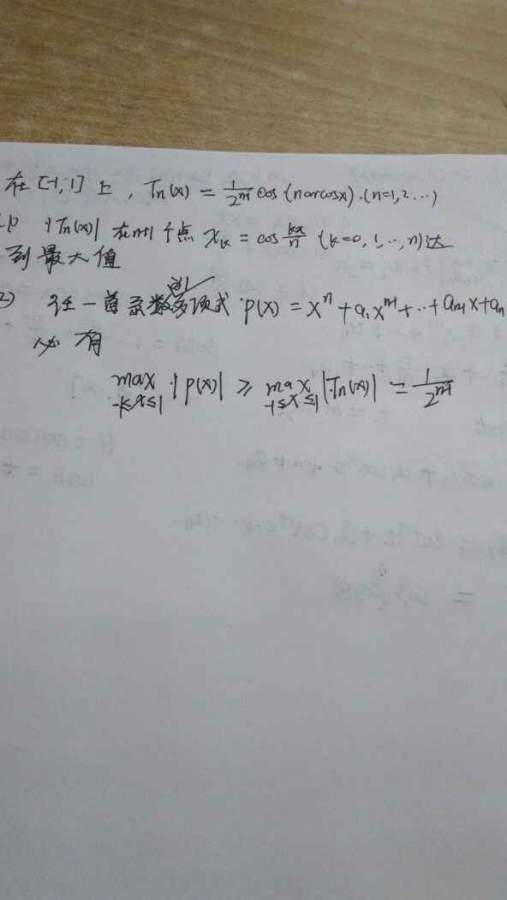 在[-1,1]上, Tn(x) = 1/2^(n-1) cos(n arccosx).(n=1,2…)
1) |Tn(x)| 在n+1个点 xk = cos kπ/n (k=0,1,…,n)达
到最大值
2) 任一首系数为1多项式 p(x) = x^n + a1 x^(n-1) + … + a(n-1) x + an
必有
max |p(x)| ≥ max |Tn(x)| = 1/2^(n-1)
-1≤x≤1 -1≤x≤1